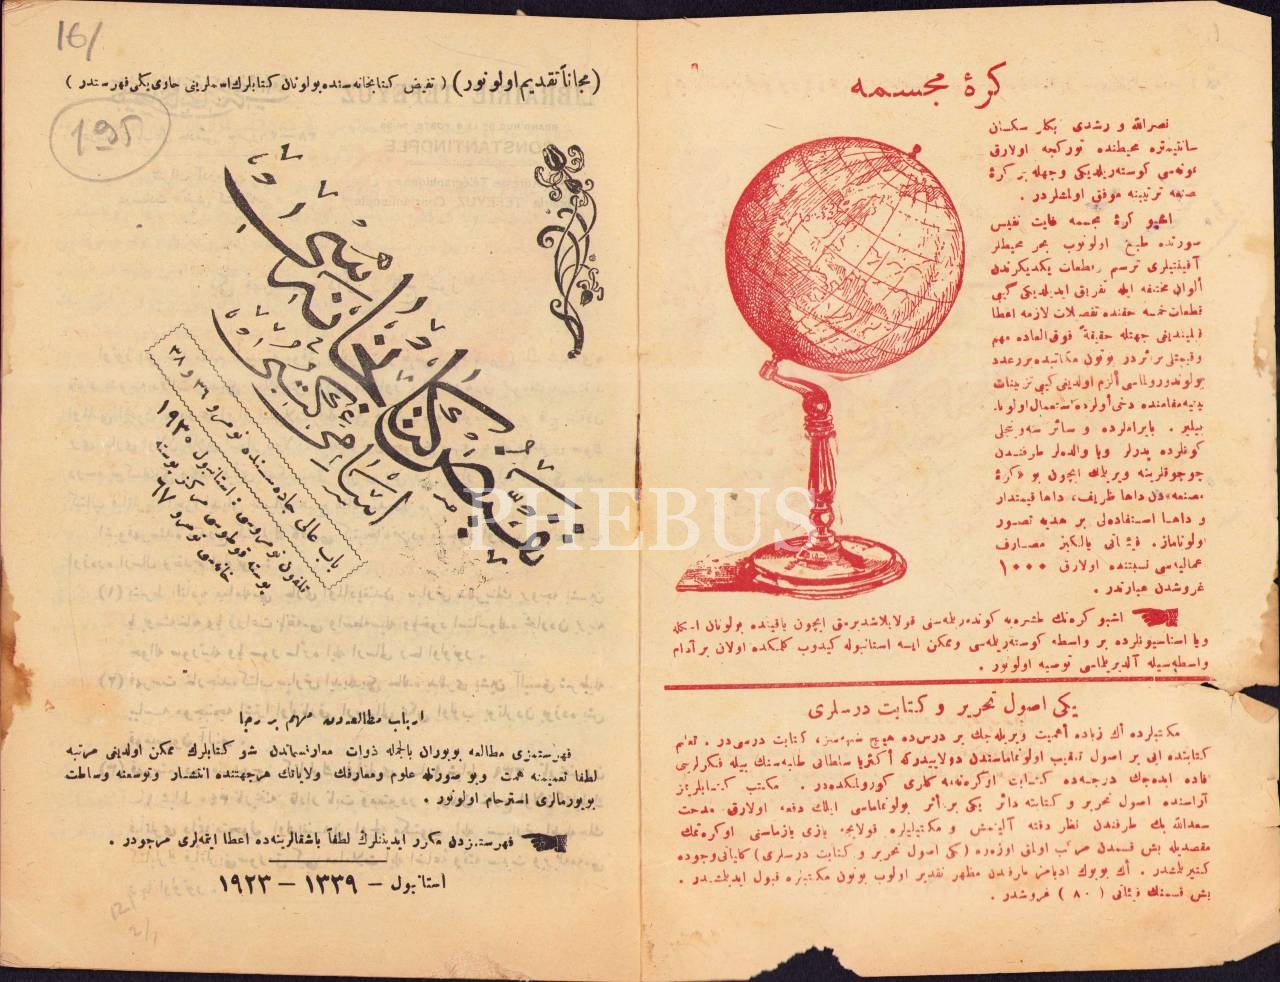 16/
195
(مجاناً تقدیم اولونور) ( تفیض كتابخانه‌سنده بولونان كتابلرك اسملرینی حاوی یكی فهرستدر )
تفیض كتابخانه‌سی
باب عالی جاده‌سنده نومرو ٣٦ و ٣٨
تلفون نومروسی : استانبول ١٩٣٠
پوسته قوطوسی مركز پوسته
خانه‌سی نومرو ٦٧
ارباب مطالعه‌دن مهم بر رجا
فهرستمزی مطالعه بویوران بالجمله ذوات معارفسماندن شو كتابلرك ممكن اولدیغی مرتبه
لطفاً تعمیمنه همت وبو صورتله علوم ومعارفك ولایاتك هر جهتنده انتشار وتوسعنه وساطت
بویورمالری استرحام اولونور .
فهرستمزدن مكرر ایدینلرك لطفاً باشقالرینه‌ده اعطا ایتمه‌لری مرجودر .
استانبول – ١٣٣٩ – ١٩٢٣
كرهٔ مجسمه
نصرالله و رشدی بكلر سكسان
سانتیمتره محیطنده توركجه اولارق
نمونه‌سی كوستریلدیكی وجهله بر كرهٔ
مصنعه ترتیبنه موفق اولمشلردر .
اشبو كرهٔ مجسمه غایت نفیس
صورتده طبع اولونوب بحر محیطلر
الوان مختلفه ایله تفریق ایدیلدیكی كبی
قطعات خمسه حقنده تفصیلات لازمه اعطا
قیلیندیغی جهتله حقیقة فوق‌العاده مهم
وقیمتلی بر اثردر بوتون مكاتبده بررعدد
بولوندورولماسی الزم اولدیغی كبی تزیینات
بیتیه مقامنده دخی اولرده استعمال اولونا
بیلیر . بایراملرده و سائر سه‌وینجلی
كونلرده پدرلر ویا والده‌لر طرفندن
چوجوقلرینه ویریلمك ایچون بو «كرهٔ
مصنعه»دن داها ظریف، داها قیمتدار
و داها استفاده‌لی بر هدیه تصور
اولوناماز. فیئاتی یالكز مصارف
عمالیه‌سی نسبتنده اولارق ١٠٠٠
غروشدن عبارتدر .
اشبو كره‌نك طشره‌یه كونده‌ریلمه‌سی قولایلاشدیرمق ایچون یاقینده بولونان اسكله
ویا استاسیونلرده بر واسطه كوستریلمه‌سی وممكن ایسه استانبوله كیدوب كلمكده اولان بر آدام
واسطه‌سیله آلدیرلماسی توصیه اولونور .
یكی اصول تحریر و كتابت درسلری
مكتبلرده اك زیاده اهمیت ویریله‌جك بر درس‌ده هیچ شبهه‌سز، كتابت درسیدر . تعلیم
كتابنده ایی بر اصول تعقیب اولونماماسندن دولاییدركه اكثریا سلطانی طلبه‌سنك بیله فكرلرینی
افاده ایده‌جك درجه‌ده كتابت اوكرنه‌مه‌مكلری كورولمكده‌در . مكتب كتابلریمز
آراسنده اصول تحریر و كتابته دائر یكی بر اثر بولونماماسی ایلك دفعه اولارق مدحت
سعدالله بك طرفندن نظر دقته آلینمش و مكتبلیلره قولایجه یازی یازماسنی اوكره‌تمك
مقصدیله بش قسمدن مركب اولمق اوزره (یكی اصول تحریر و كتابت درسلری) كلیاتی وجوده
كتیرلمشدر . اك بویوك ادبامز طرفندن مظهر تقدیر اولوب بوتون مكتبلرمزه قبول ایدیلمشدر .
بش قسمنك فیئاتی ( ٨٠ ) غروشدر .
PHEBUS